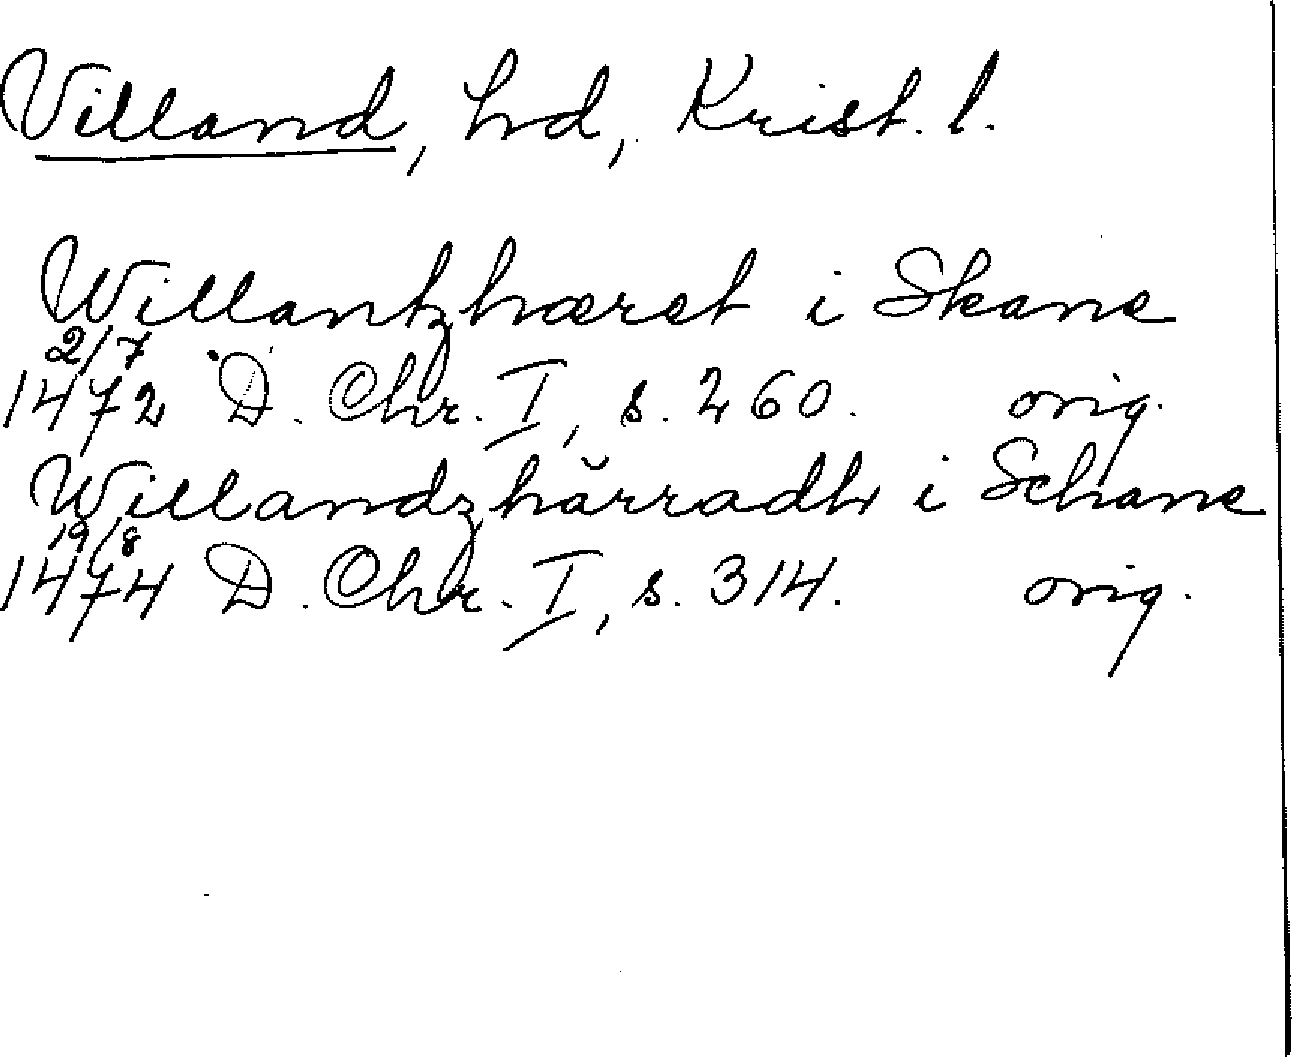 Villand, hd, Krist. l.
Willantzhæret i Skane
2/7
1472 D. Chr. I, s. 260. orig.
Willandzhărradh i Schane
19/8
1474 D. Chr. I, s. 314. orig.